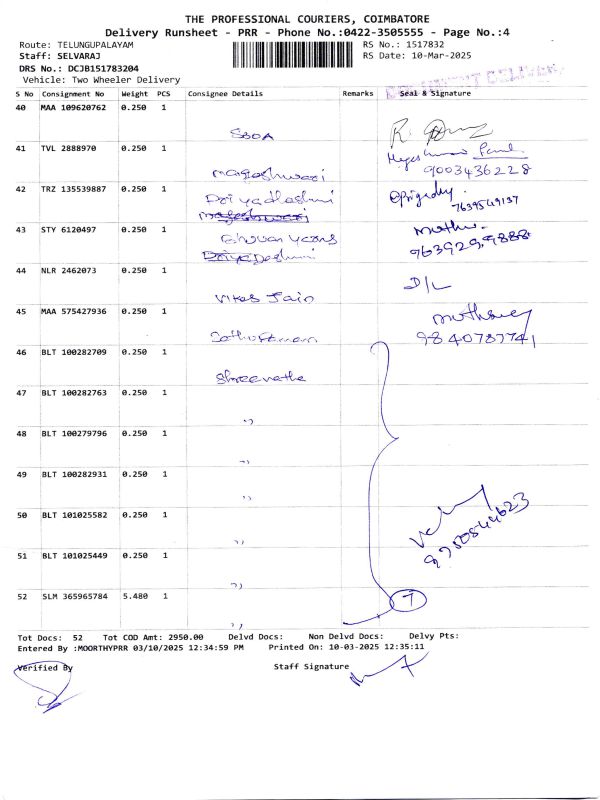 THE PROFESSIONAL COURIERS, COIMBATORE
Delivery Runsheet - PRR - Phone No.:0422-3505555 - Page No.:4
Route: TELUNGUPALAYAM RS No.: 1517832
Staff: SELVARAJ RS Date: 10-Mar-2025
DRS No.: DCJB151783204
Vehicle: Two Wheeler Delivery
S No Consignment No Weight PCS Consignee Details Remarks Seal & Signature
40 MAA 109620762 0.250 1
SBOA
41 TVL 2888970 0.250 1
Mageshwari 9003436228
42 TRZ 135539887 0.250 1
Priyadharshini 7639549137
Mageshwari
43 STY 6120497 0.250 1
9639299888
44 NLR 2462073 0.250 1
D/L
Vikas Jain
45 MAA 575427936 0.250 1
9840787741
46 BLT 100282709 0.250 1
Shreevatha
47 BLT 100282763 0.250 1
")
48 BLT 100279796 0.250 1
")
49 BLT 100282931 0.250 1
")
50 BLT 101025582 0.250 1
")
51 BLT 101025449 0.250 1
")
52 SLM 365965784 5.480 1
7
")
Tot Docs: 52 Tot COD Amt: 2950.00 Delvd Docs: Non Delvd Docs: Delvy Pts:
Entered By :MOORTHYPRR 03/10/2025 12:34:59 PM Printed On: 10-03-2025 12:35:11
Verified By Staff Signature